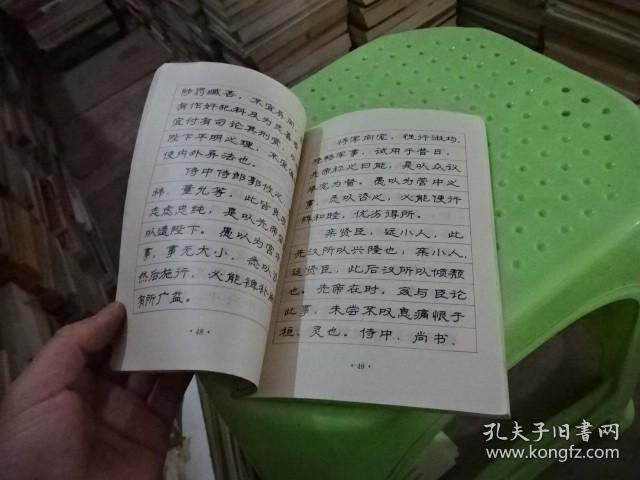 陟罚臧否，不宜异同
有作奸犯科及为忠善
宜付有司论其刑赏
陛下平明之理，不宜
使内外异法也。
侍中侍郎郭攸之
祎、董允等，此皆良
志虑忠纯，是以先帝
以遗陛下。愚以为宫
事，事无大小，悉以
然后施行，必能裨补
有所广益。
·48·
将军向宠，性行淑均，
晓畅军事，试用于昔日，
先帝称之曰能，是以众议
举宠为督。愚以为营中之
事，悉以咨之，必能使行
阵和睦，优劣得所。
亲贤臣，远小人，此
先汉所以兴隆也；亲小人，
远贤臣，此后汉所以倾颓
也。先帝在时，每与臣论
此事，未尝不叹息痛恨于
桓、灵也。侍中、尚书、
·49·
孔夫子旧书网
www.kongfz.com